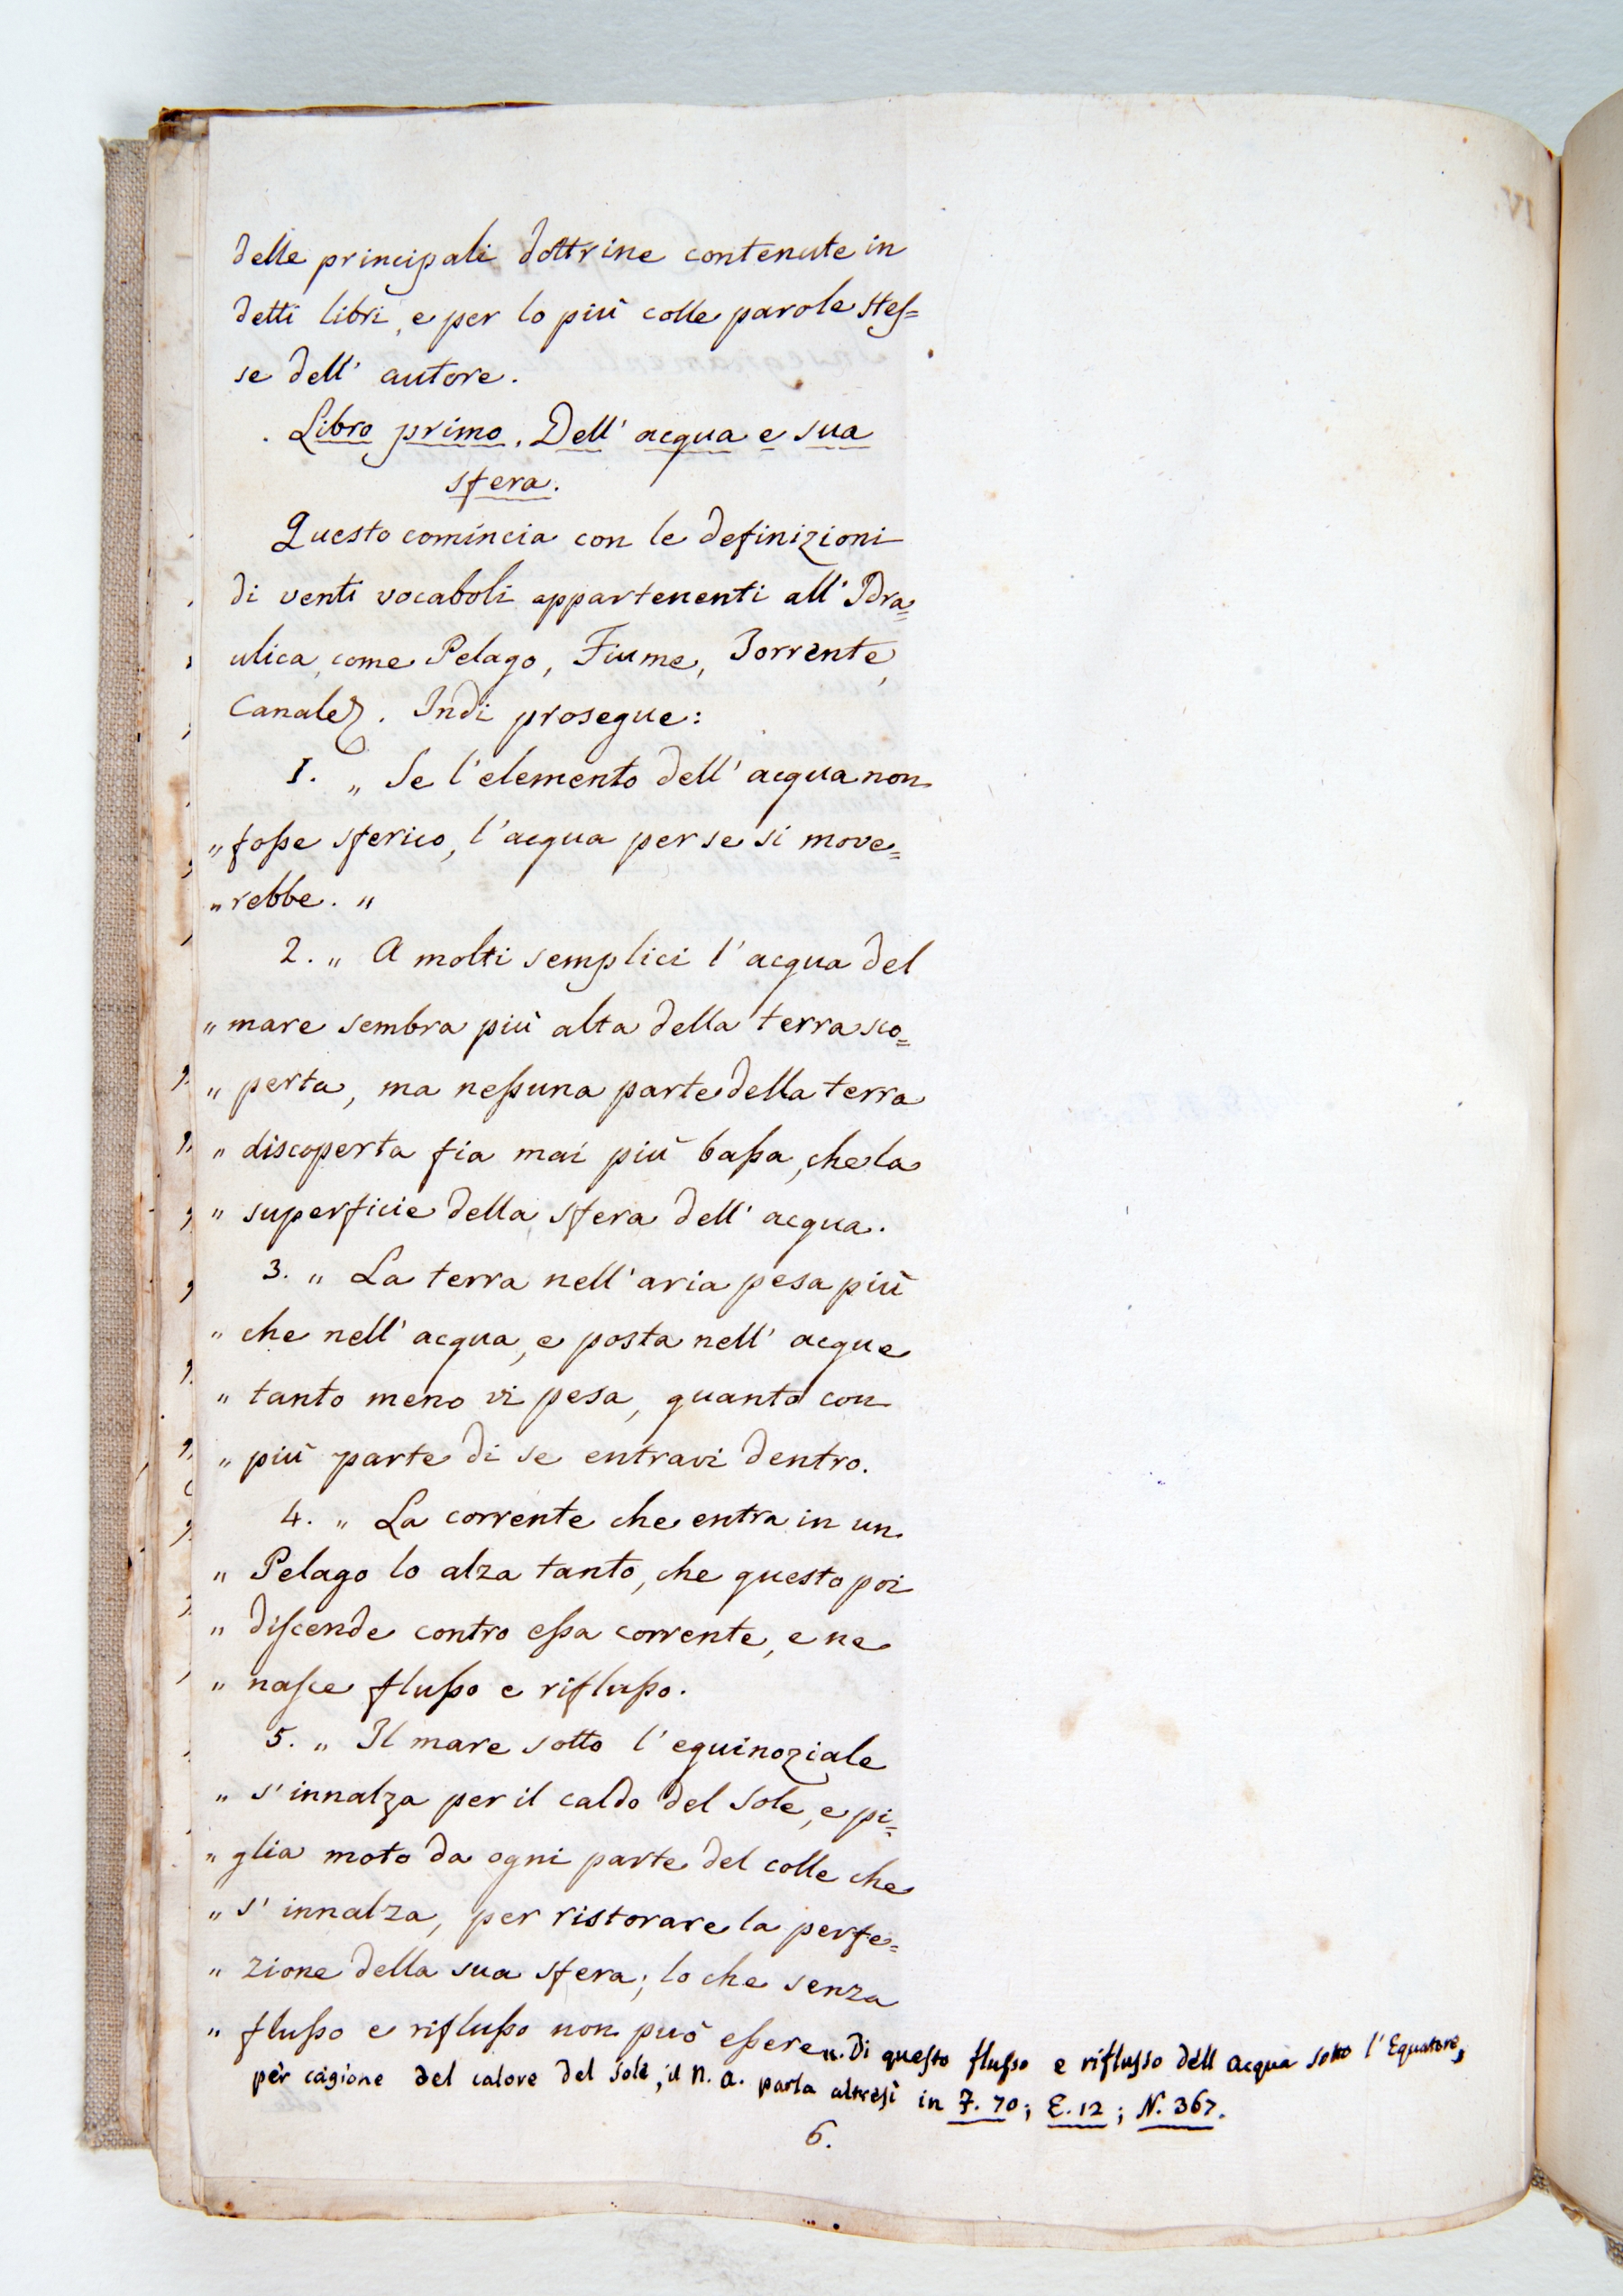 delle principali dottrine contenute in
detti libri, e per lo più colle parole stes=
se dell' autore.
Libro primo. Dell' acqua e sua
sfera.
Questo comincia con le definizioni
di venti vocaboli appartenenti all' Idra=
ulica, come Pelago, Fiume, Torrente,
Canale &. Indi prosegue:
1. „ Se l'elemento dell' acqua non
„ fosse sferico, l'acqua per se si move=
„ rebbe. „
2. „ A molti semplici l'acqua del
„ mare sembra più alta della terra sco=
„ perta, ma nessuna parte della terra
„ discoperta fia mai più bassa, che la
„ superficie della sfera dell' acqua.
3. „ La terra nell' aria pesa più
„ che nell' acqua, e posta nell' acqua
„ tanto meno vi pesa, quanto con
„ più parte di se entravi dentro.
4. „ La corrente che entra in un
„ Pelago lo alza tanto, che questo poi
„ discende contro essa corrente, e ne
„ nasce flusso e riflusso.
5. „ Il mare sotto l'equinoziale
„ s'innalza per il caldo del Sole, e pi=
„ glia moto da ogni parte del colle che
„ s'innalza, per ristorare la perfe=
„ zione della sua sfera; lo che senza
„ flusso e riflusso non può essere „. Di questo flusso e riflusso dell acqua sotto l'Equatore,
per cagione del calore del Sole, il N. A. parla altresì in F. 70; E. 12; N. 367.
6.
IV.